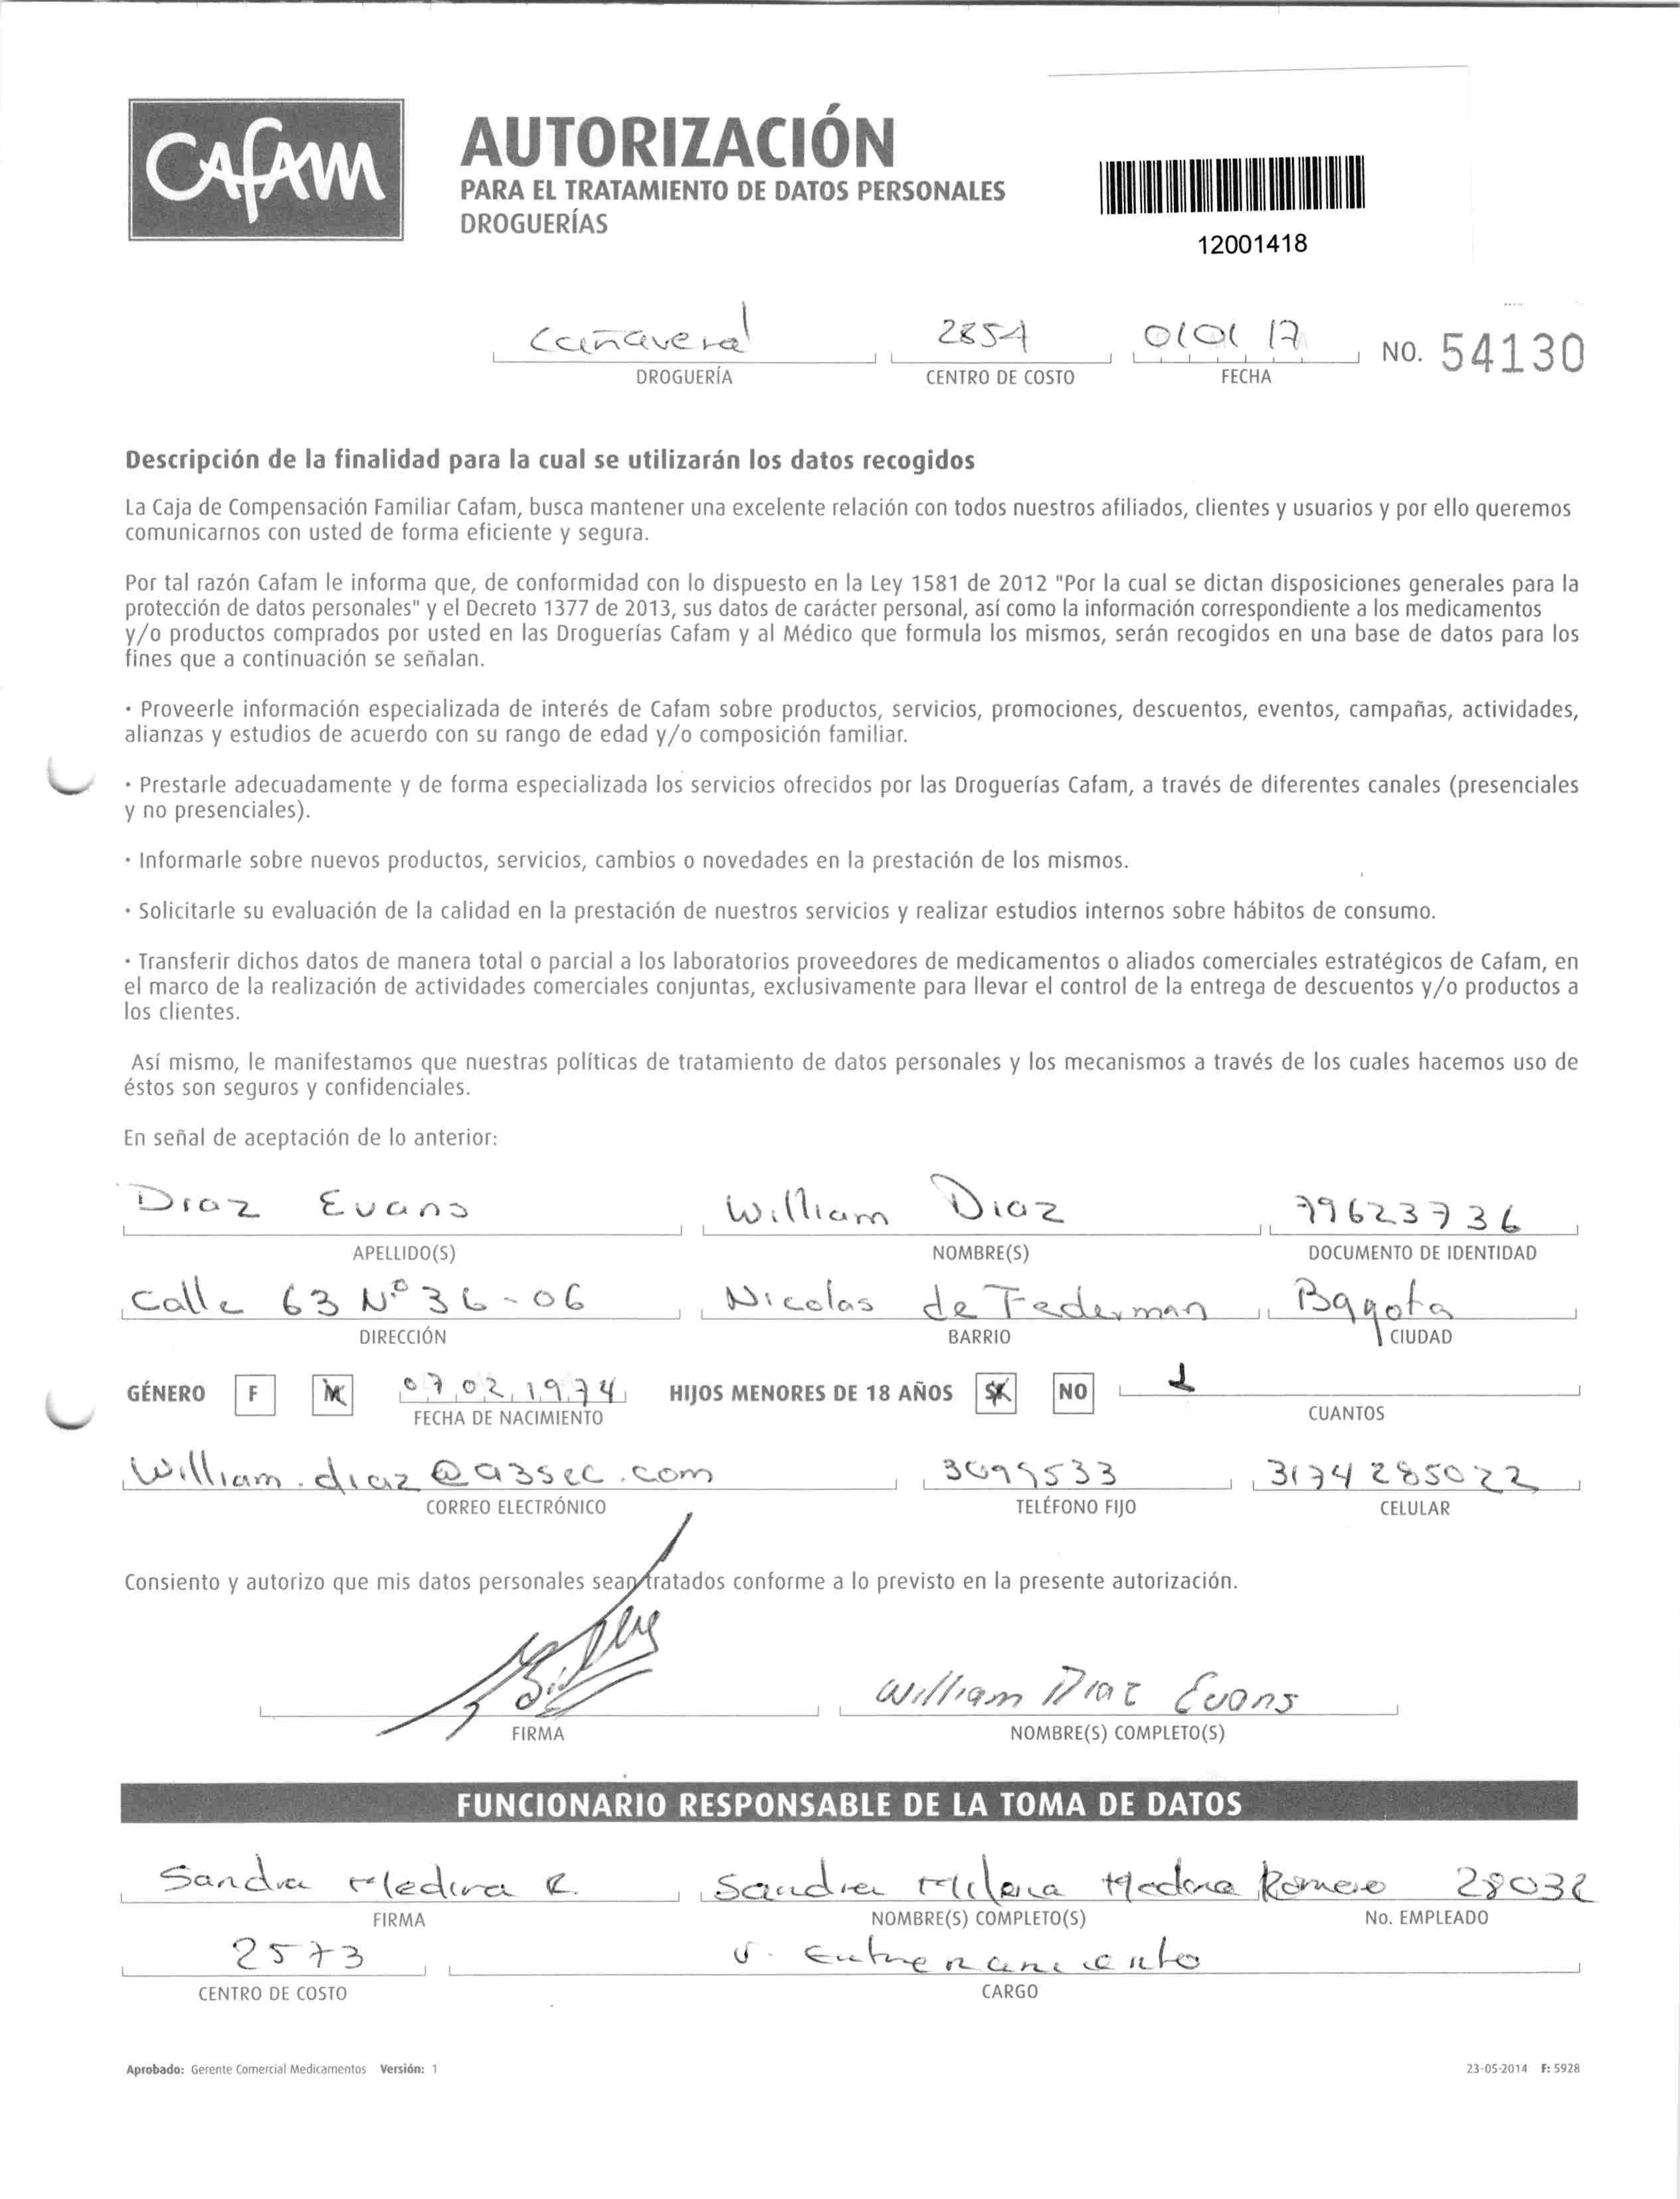 CAFAM
AUTORIZACIÓN
PARA EL TRATAMIENTO DE DATOS PERSONALES
DROGUERÍAS
12001418
Cañaveral 2854 010117 NO. 54130
DROGUERÍA CENTRO DE COSTO FECHA
Descripción de la finalidad para la cual se utilizarán los datos recogidos
La Caja de Compensación Familiar Cafam, busca mantener una excelente relación con todos nuestros afiliados, clientes y usuarios y por ello queremos
comunicarnos con usted de forma eficiente y segura.
Por tal razón Cafam le informa que, de conformidad con lo dispuesto en la Ley 1581 de 2012 "Por la cual se dictan disposiciones generales para la
protección de datos personales" y el Decreto 1377 de 2013, sus datos de carácter personal, así como la información correspondiente a los medicamentos
y/o productos comprados por usted en las Droguerías Cafam y al Médico que formula los mismos, serán recogidos en una base de datos para los
fines que a continuación se señalan.
· Proveerle información especializada de interés de Cafam sobre productos, servicios, promociones, descuentos, eventos, campañas, actividades,
alianzas y estudios de acuerdo con su rango de edad y/o composición familiar.
· Prestarle adecuadamente y de forma especializada los servicios ofrecidos por las Droguerías Cafam, a través de diferentes canales (presenciales
y no presenciales).
· Informarle sobre nuevos productos, servicios, cambios o novedades en la prestación de los mismos.
· Solicitarle su evaluación de la calidad en la prestación de nuestros servicios y realizar estudios internos sobre hábitos de consumo.
· Transferir dichos datos de manera total o parcial a los laboratorios proveedores de medicamentos o aliados comerciales estratégicos de Cafam, en
el marco de la realización de actividades comerciales conjuntas, exclusivamente para llevar el control de la entrega de descuentos y/o productos a
los clientes.
Así mismo, le manifestamos que nuestras políticas de tratamiento de datos personales y los mecanismos a través de los cuales hacemos uso de
éstos son seguros y confidenciales.
En señal de aceptación de lo anterior:
Diaz Evans William Diaz 79623736
APELLIDO(S) NOMBRE(S) DOCUMENTO DE IDENTIDAD
Calle 63 Nº 36-06 Nicolas de Federman Bogota
DIRECCIÓN BARRIO CIUDAD
GÉNERO F M 07 02 1974 HIJOS MENORES DE 18 AÑOS SI NO 1
FECHA DE NACIMIENTO CUANTOS
William.diaz@a3sec.com 3174285022
CORREO ELECTRÓNICO TELÉFONO FIJO CELULAR
Consiento y autorizo que mis datos personales sean tratados conforme a lo previsto en la presente autorización.
William Diaz Evans
FIRMA NOMBRE(S) COMPLETO(S)
FUNCIONARIO RESPONSABLE DE LA TOMA DE DATOS
Sandra Medina R. Sandra Milena Medina Romero
FIRMA NOMBRE(S) COMPLETO(S) No. EMPLEADO
2573 Entrenamiento
CENTRO DE COSTO CARGO
Aprobado: Gerente Comercial Medicamentos Versión: 1 23-05-2014 F: 5928